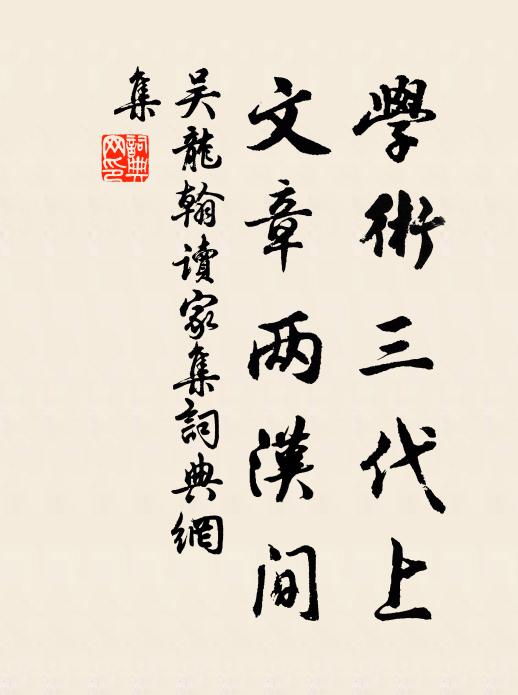 學術三代上
文章两漢間
吴龍翰讀家集詞典網
集
詞典
网印